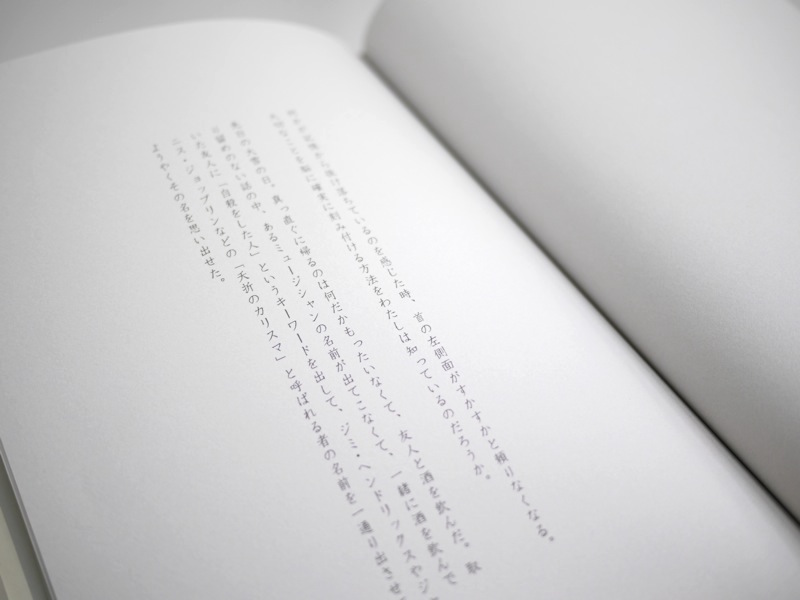 記憶から抜け落ちているのを感じた時、首の左側面がすかすかと頼りなくなる。
大切なことを脳に確実に刻み付ける方法をわたしは知っているのだろうか。
大雪の日。真っ直ぐに帰るのは何だかもったいなくて、友人と酒を飲んだ。取
り留めのない話の中、あるミュージシャンの名前が出てこなくて、一緒に酒を飲んで
いた友人に「自殺をした人」というキーワードを出して、ジミ・ヘンドリックスやジ
ニス・ジョップリンなどの「夭折のカリスマ」と呼ばれる者の名前を一通り出させ
ようやくその名を思い出せた。